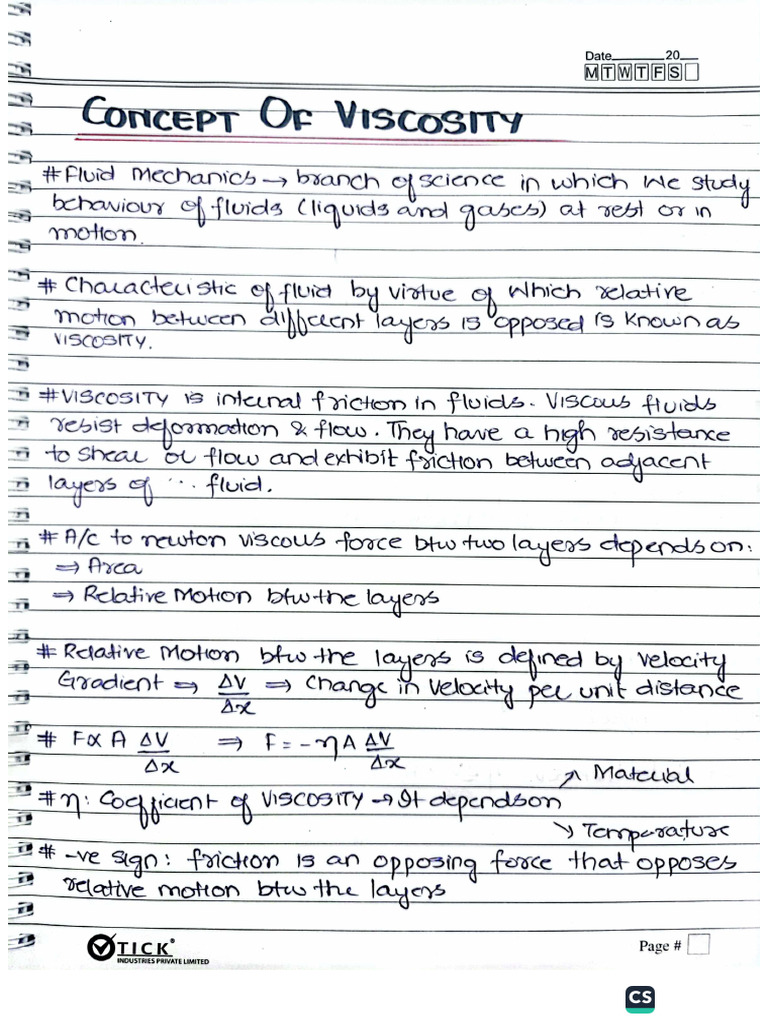 Date 20
M T W T F S
CONCEPT OF VISCOSITY
# Fluid Mechanics → branch of science in which we study
behaviour of fluids (liquids and gases) at rest or in
motion.
# Characteristic of fluid by virtue of which relative
motion between different layers is opposed is known as
VISCOSITY.
# VISCOSITY is internal friction in fluids. Viscous fluids
resist deformation & flow. They have a high resistance
to shear or flow and exhibit friction between adjacent
layers of ... fluid.
# A/c to newton viscous force btw two layers depends on:
⇒ Area
⇒ Relative Motion btw the layers
# Relative Motion btw the layers is defined by velocity
Gradient ⇒ ΔV/Δx ⇒ Change in Velocity per unit distance
# F∝ A ΔV/Δx ⇒ F = -ηA ΔV/Δx
↗ Material
# η: Coefficient of VISCOSITY → It depends on
↘ Temperature
# -ve sign: friction is an opposing force that opposes
relative motion btw the layers
TICK®
INDUSTRIES PRIVATE LIMITED
Page #
CS